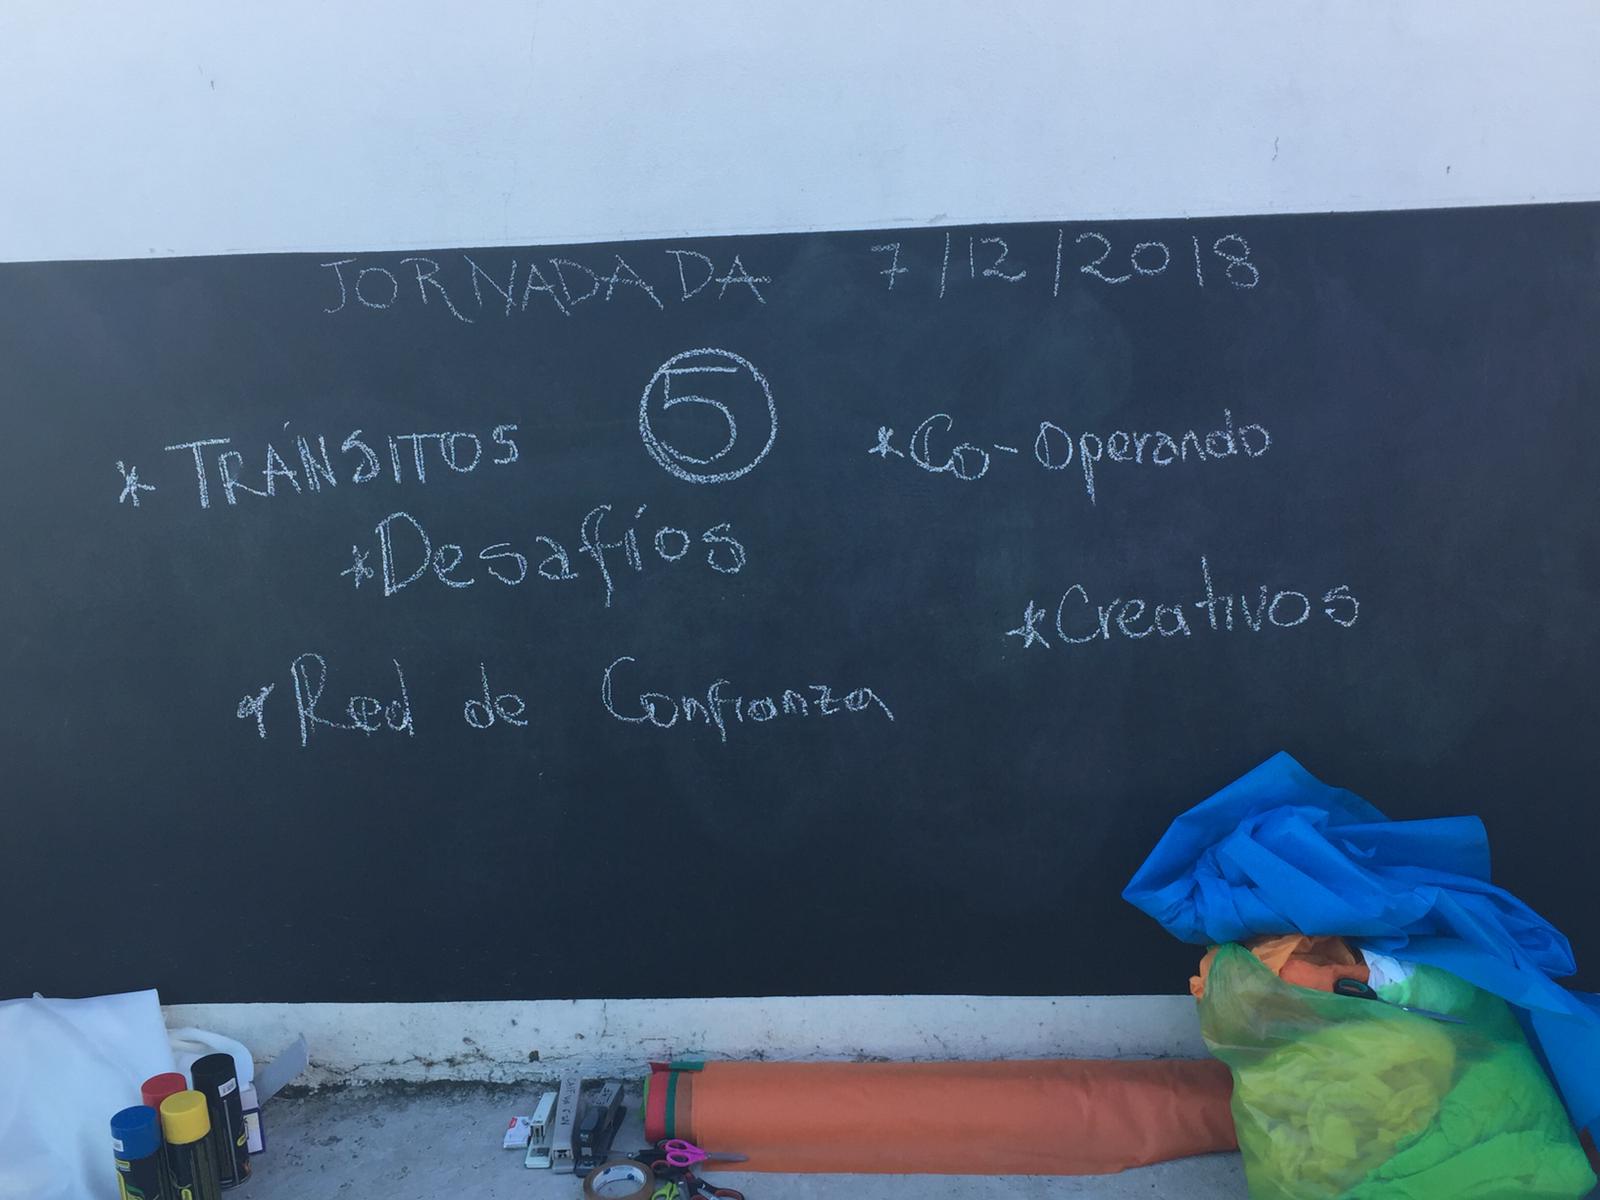 JORNADADA 7/12/2018
5
* TRÁNSITOS
* Co-Operando
* Desafíos
* Creativos
* Red de Confianza